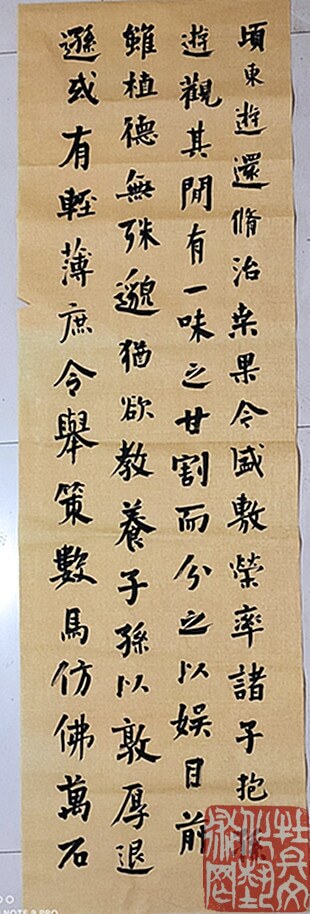 頃東遊還脩治桒果令盛敷榮率諸子抱
遊觀其閒有一味之甘割而分之以娛目前
雖植德無殊邈猶欲教養子孫以敦厚退
遜或有輕薄庶令舉策數馬仿佛萬石
NOTE 8 PRO